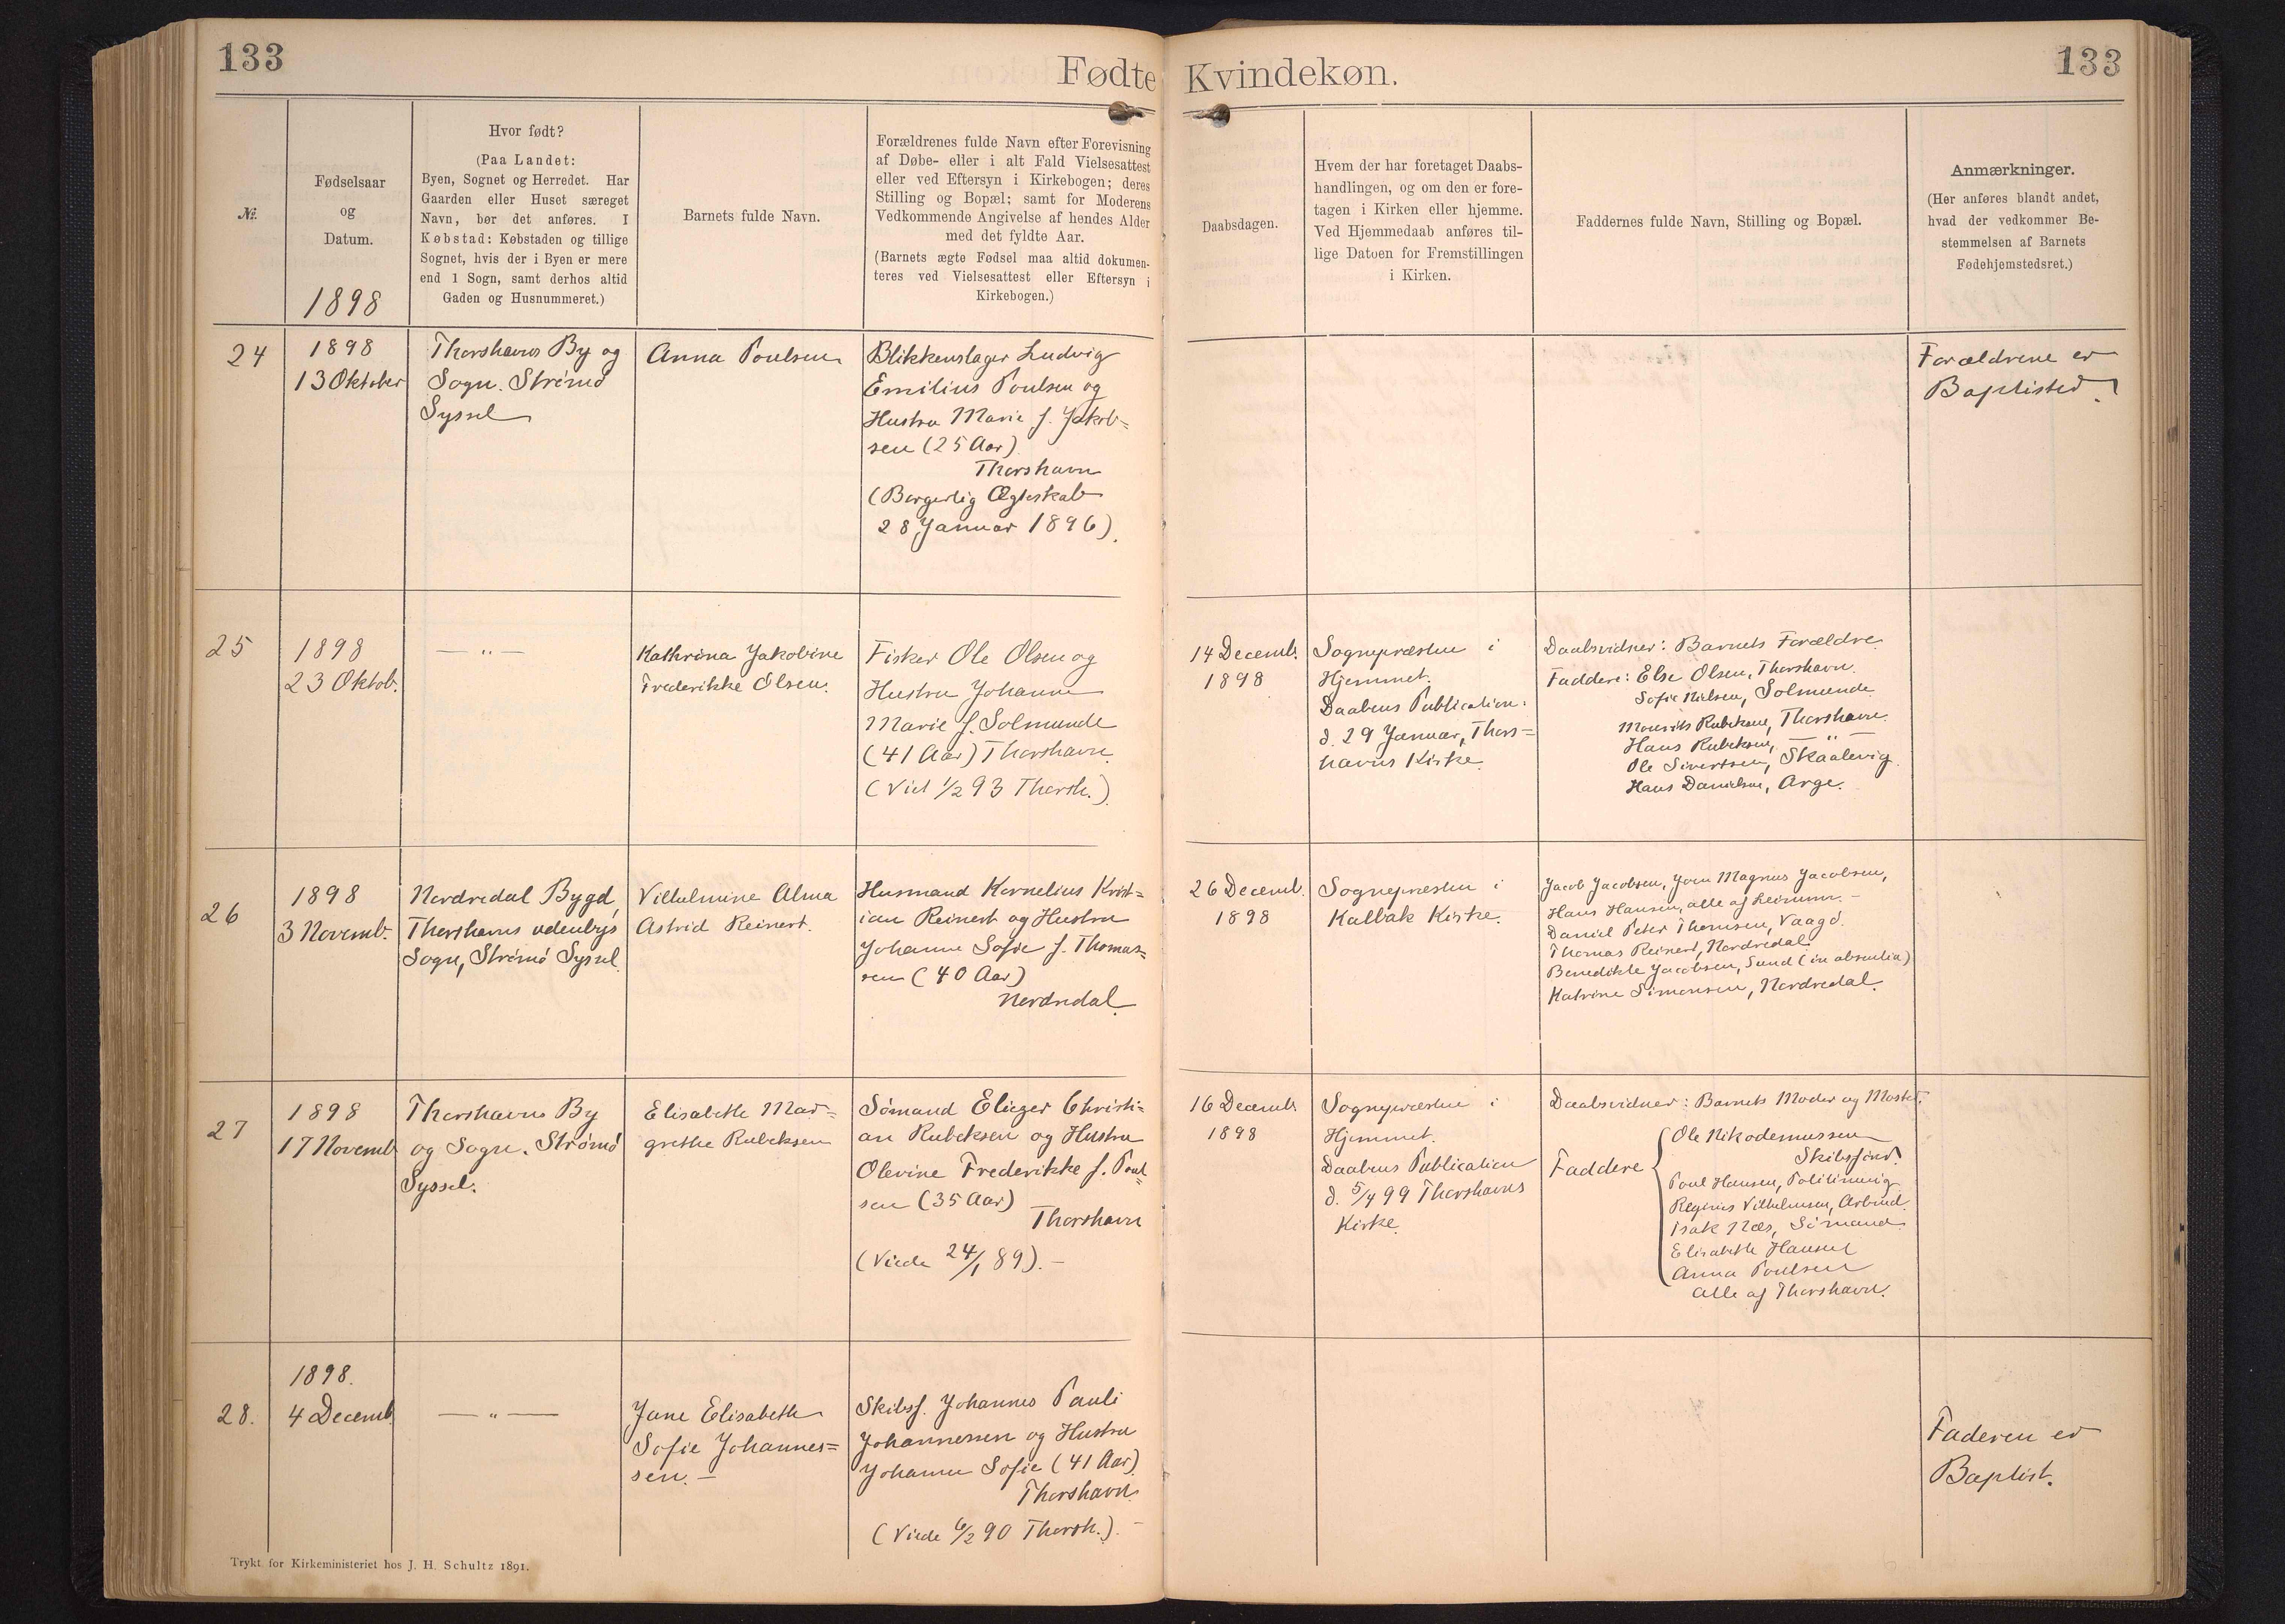 133
Fødte Kvindekøn.
133
№.
Fødselsaar
og
Datum.
1898
Hvor født?
(Paa Landet:
Byen, Sognet og Herredet. Har
Gaarden eller Huset særeget
Navn, bør det anføres. I
Købstad: Købstaden og tillige
Sognet, hvis der i Byen er mere
end 1 Sogn, samt derhos altid
Gaden og Husnummeret.)
Barnets fulde Navn.
Forældrenes fulde Navn efter Forevisning
af Døbe- eller i alt Fald Vielsesattest
eller ved Eftersyn i Kirkebogen; deres
Stilling og Bopæl; samt for Moderens
Vedkommende Angivelse af hendes Alder
med det fyldte Aar.
(Barnets ægte Fødsel maa altid dokumen-
teres ved Vielsesattest eller Eftersyn i
Kirkebogen.)
Daabsdagen.
Hvem der har foretaget Daabs-
handlingen, og om den er fore-
tagen i Kirken eller hjemme.
Ved Hjemmedaab anføres til-
lige Datoen for Fremstillingen
i Kirken.
Faddernes fulde Navn, Stilling og Bopæl.
Anmærkninger.
(Her anføres blandt andet,
hvad der vedkommer Be-
stemmelsen af Barnets
Fødehjemstedsret.)
24
1898
13 Oktober
Thorshavns By og
Sogn. Strømø
Syssel
Anna Poulsen
Blikkenslager Ludvig
Emilius Poulsen og
Hustru Marie f. Jakob=
sen (25 Aar)
Thorshavn
(Borgerlig Ægteskab
28 Januar 1896).
Forældrene er
Baptister.
25
1898
23 Oktob.
— " —
Kathrina Jakobine
Frederikke Olsen.
Fisker Ole Olsen og
Hustru Johanne
Marie f. Solmunde
(41 Aar) Thorshavn.
(Viet 1/2 93 Thorsh.).
14 Decemb.
1898
Sognepræsten i
Hjemmet.
Daabens Publication:
d. 29 Januar, Thors=
havns Kirke.
Daabsvidner: Barnets Forældre.
Faddere: Else Olsen, Thorshavn.
Sofie Nielsen, Solmunde
Mourits Rubeksen, Thorshavn.
Hans Rubeksen, — " —
Ole Sivertsen, Skaalevig.
Hans Danielsen, Arge.
26
1898
3 Novemb.
Nordredal Bygd,
Thorshavns udenbys
Sogn, Strømø Syssel.
Vilhelmine Alma
Astrid Reinert.
Husmand Kornelius Krist=
ian Reinert og Hustru
Johanne Sofie f. Thomas=
sen (40 Aar)
Nordredal.
26 Decemb.
1898
Sognepræsten i
Kalbak Kirke.
Jacob Jacobsen, Joen Magnus Jacobsen,
Hans Hansen, alle af Leinum. —
Daniel Peter Thomsen, Vaagø.
Thomas Reinert, Nordredal.
Benedikte Jacobsen, Sund (in absentia)
Katrine Simonsen, Nordredal.
27
1898
17 Novemb.
Thorshavns By
og Sogn. Strømø
Syssel.
Elisabeth Mar=
grethe Rubeksen
Sømand Eliezer Christi=
an Rubeksen og Hustru
Olevine Frederikke f. Poul=
sen (35 Aar)
Thorshavn
(Viede 24/1 89). —
16 Decemb.
1898
Sognepræsten i
Hjemmet.
Daabens Publication
d. 5/4 99 Thorshavns
Kirke.
Daabsvidner: Barnets Moder og Moster.
Faddere
Ole Nikodemussen
Skibsfører.
Poul Hansen,
Reginus Vilhelmsen, Arbmd.
Isak Næs, Sømand.
Elisabeth Hansen
Anna Poulsen
alle af Thorshavn.
28.
1898.
4 Decemb.
— " —
Jane Elisabeth
Sofie Johannes=
sen. —
Skibsf. Johannes Pauli
Johannessen og Hustru
Johanne Sofie (41 Aar).
Thorshavn.
(Viede 6/2 90 Thorsh.). —
Faderen er
Baptist.
Trykt for Kirkeministeriet hos J. H. Schultz 1891.